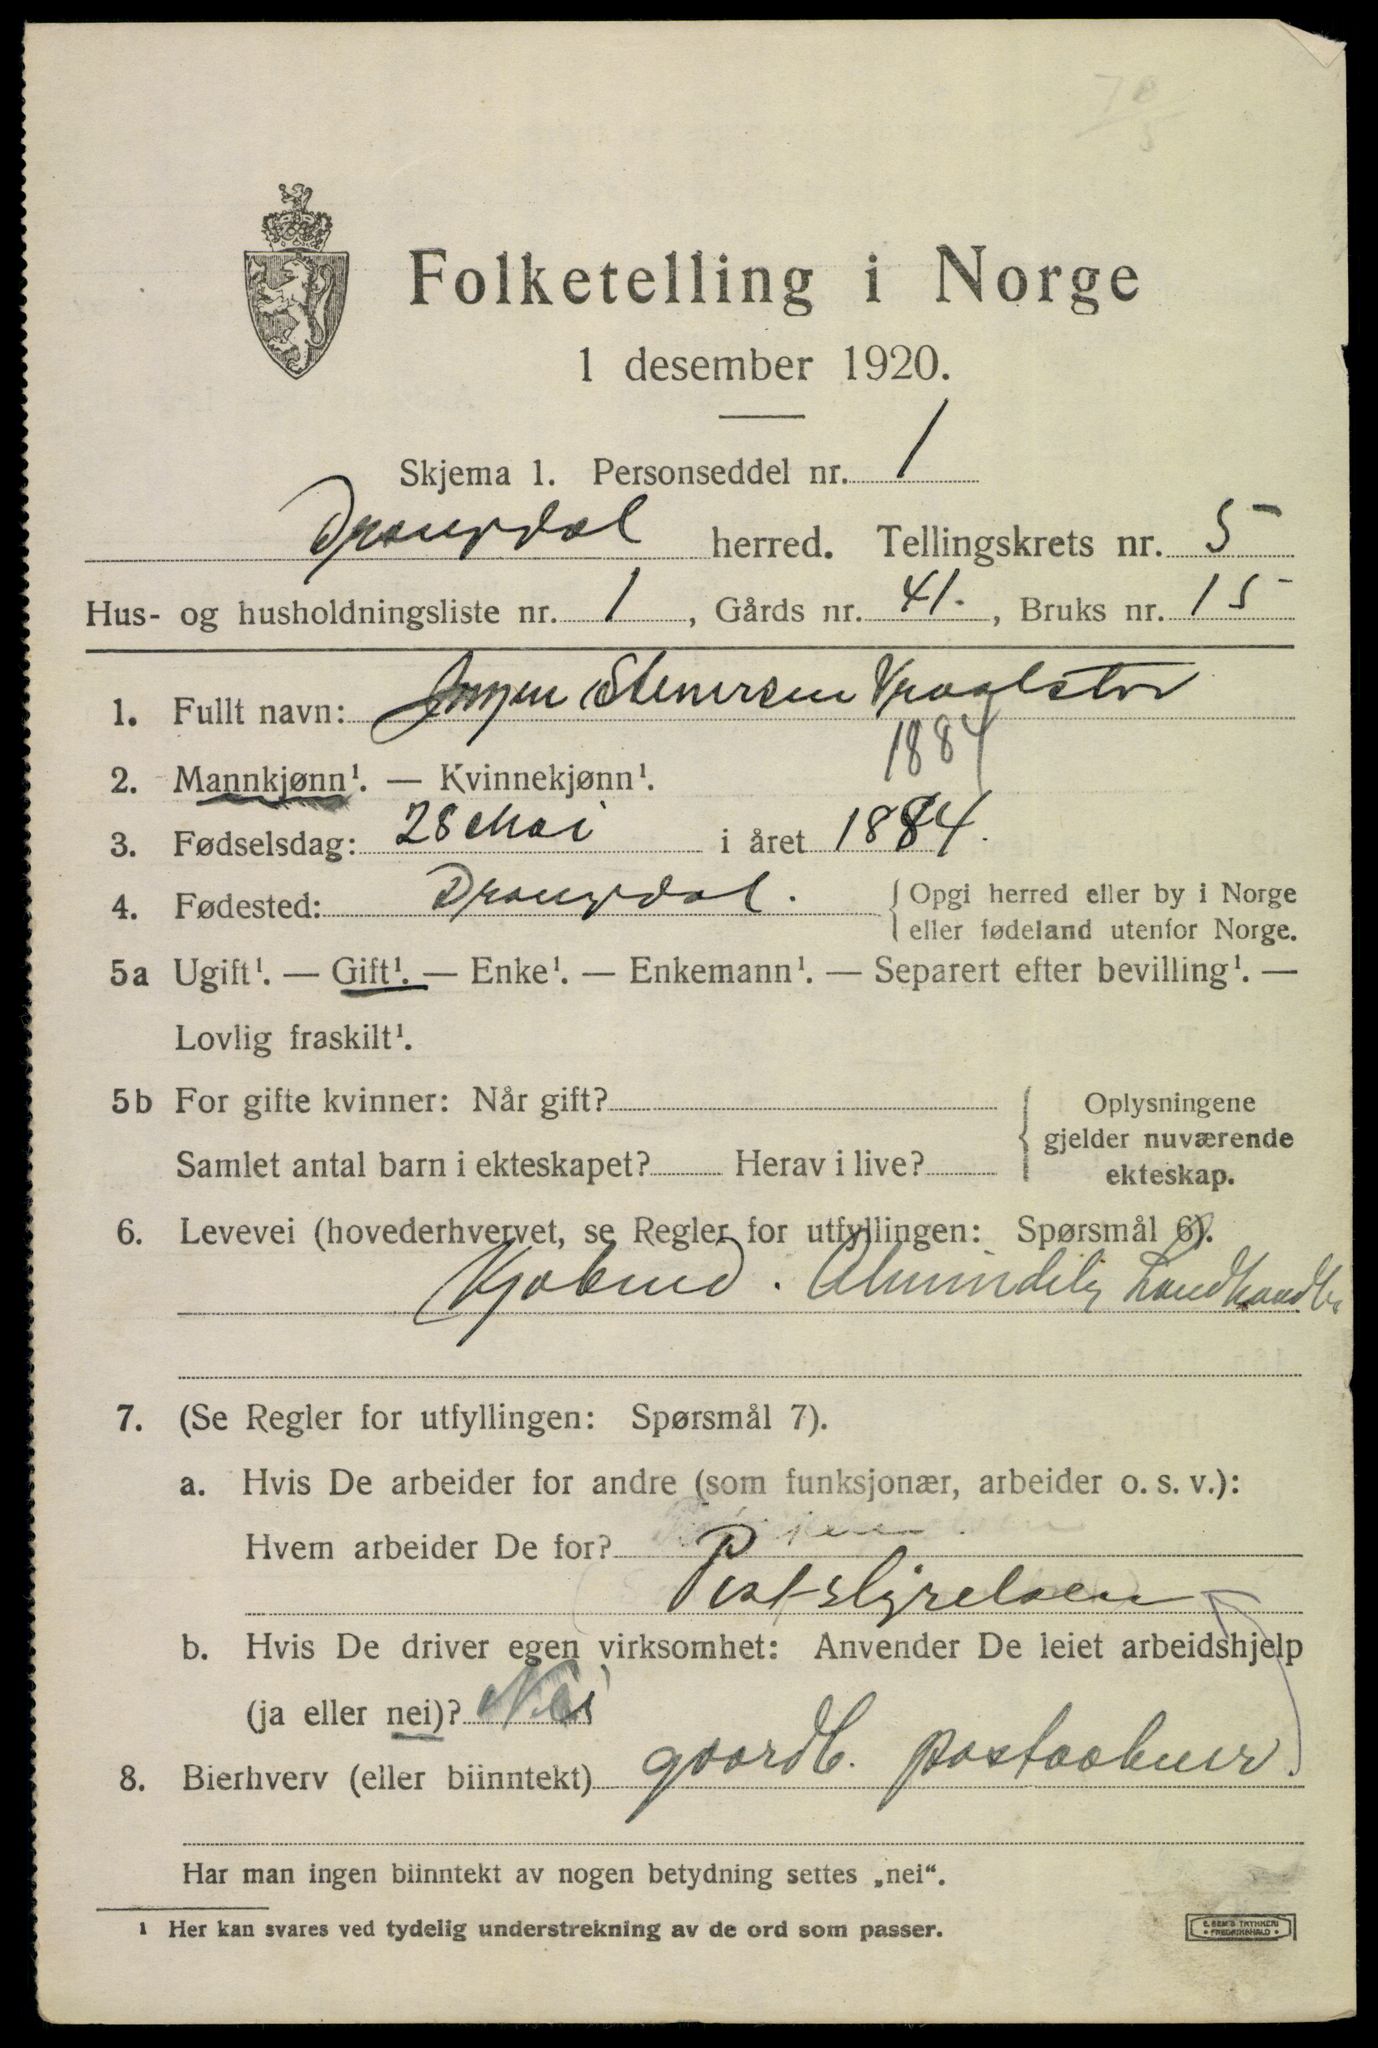 Folketelling i Norge
1 desember 1920.
Skjema 1. Personseddel nr. 1
Drangedal herred. Tellingskrets nr. 5
Hus- og husholdningsliste nr. 1, Gårds nr. 41., Bruks nr. 15
1. Fullt navn: Jørgen Stenersen Vraalstad
1884
2. Mannkjønn¹. — Kvinnekjønn¹.
3. Fødselsdag: 28 Mai i året 1884.
4. Fødested: Drangedal. { Opgi herred eller by i Norge
eller fødeland utenfor Norge.
5a Ugift¹. — Gift¹. — Enke¹. — Enkemann¹. — Separert efter bevilling¹. —
Lovlig fraskilt¹.
5b For gifte kvinner: Når gift? { Oplysningene
gjelder nuværende
Samlet antal barn i ekteskapet? Herav i live? ekteskap.
6. Levevei (hovederhvervet, se Regler for utfyllingen: Spørsmål 6).
Almindelig Landhandle
7. (Se Regler for utfyllingen: Spørsmål 7).
a. Hvis De arbeider for andre (som funksjonær, arbeider o. s. v.):
Hvem arbeider De for?
Poststyrelsen
b. Hvis De driver egen virksomhet: Anvender De leiet arbeidshjelp
(ja eller nei)? Nei
8. Bierhverv (eller biinntekt) gaardb. postaabner.
Har man ingen biinntekt av nogen betydning settes „nei“.
¹ Her kan svares ved tydelig understrekning av de ord som passer.
E. SEM'S TRYKKERI
• FREDRIKSHALD •